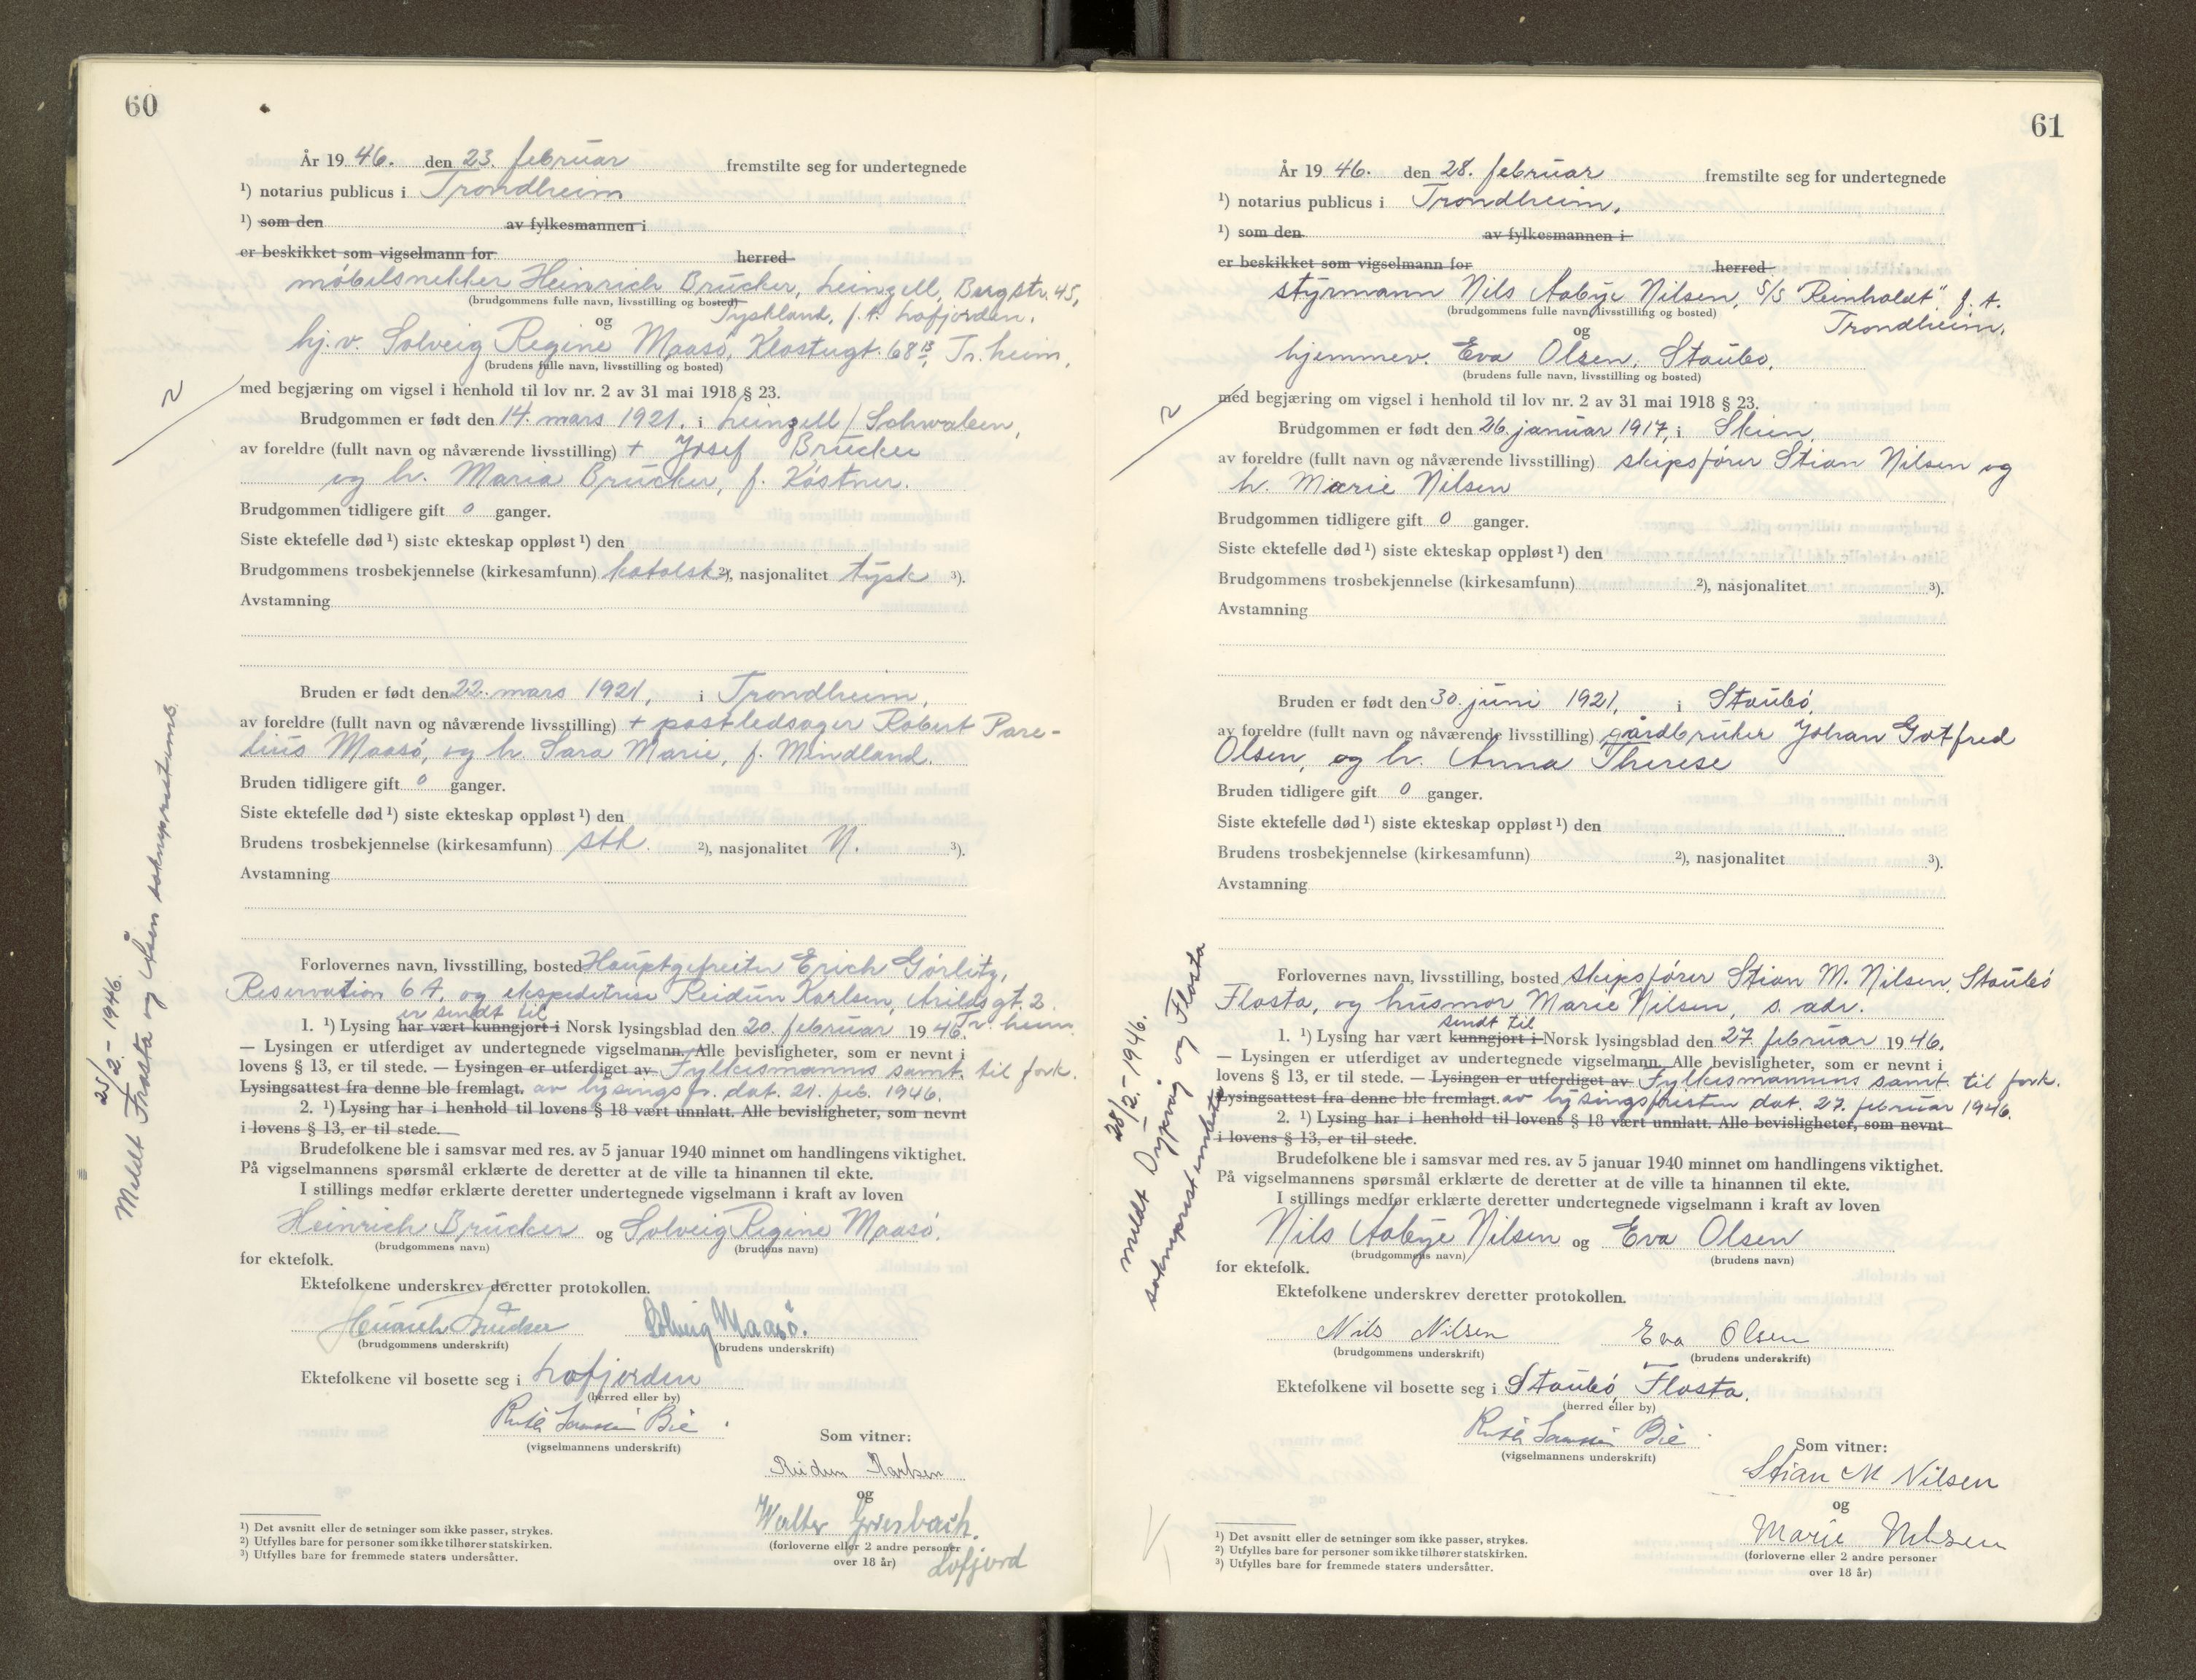 60
År 19 46. den 23. februar fremstilte seg for undertegnede
¹) notarius publicus i Trondheim
¹) som den av fylkesmannen i
er beskikket som vigselmann for herred
møbelsnekker Heinrich Brücker, Leinzell, Bergstr. 45,
(brudgommens fulle navn, livsstilling og bosted)
Tyskland, f. t. Lofjorden.
og
hj.v. Solveig Regine Maasø, Klostergt. 68 B, Tr.heim,
(brudens fulle navn, livsstilling og bosted)
med begjæring om vigsel i henhold til lov nr. 2 av 31 mai 1918 § 23.
Brudgommen er født den 14. mars 1921. i Leinzell / Schwaben,
av foreldre (fullt navn og nåværende livsstilling) + Josef Brücker
og h. Maria Brücker, f. Köstner.
Brudgommen tidligere gift 0 ganger.
Siste ektefelle død ¹) siste ekteskap oppløst ¹) den
Brudgommens trosbekjennelse (kirkesamfunn) katolsk ²), nasjonalitet tysk ³).
Avstamning
Bruden er født den 22. mars 1921, i Trondheim,
av foreldre (fullt navn og nåværende livsstilling) + postledsager Robert Pare-
lius Maasø, og h. Sara Marie, f. Mindland.
Bruden tidligere gift 0 ganger.
Siste ektefelle død ¹) siste ekteskap oppløst ¹) den
Brudens trosbekjennelse (kirkesamfunn) stk. ²), nasjonalitet N. ³).
Avstamning
Forlovernes navn, livsstilling, bosted Hauptgefreiter Erich Görlitz,
Reservation 6 A, og ekspeditrise Reidun Karlsen, Arildsgt. 2
er sendt til Tr.heim
1. ¹) Lysing har vært kunngjort i Norsk lysingsblad den 20. februar 19 46.
— Lysingen er utferdiget av undertegnede vigselmann. Alle bevisligheter, som er nevnt i
lovens § 13, er til stede. — Lysingen er utferdiget av Fylkesmannens samt. til fork.
Lysingsattest fra denne ble fremlagt. av lysingsfr. dat. 21. feb. 1946.
2. ¹) Lysing har i henhold til lovens § 18 vært unnlatt. Alle bevisligheter, som nevnt
i lovens § 13, er til stede.
Brudefolkene ble i samsvar med res. av 5 januar 1940 minnet om handlingens viktighet.
På vigselmannens spørsmål erklærte de deretter at de ville ta hinannen til ekte.
I stillings medfør erklærte deretter undertegnede vigselmann i kraft av loven
Heinrich Brücker og Solveig Regine Maasø.
(brudgommens navn) (brudens navn)
for ektefolk.
Ektefolkene underskrev deretter protokollen.
Heinrich Brücker Solveig Maasø.
(brudgommens underskrift) (brudens underskrift)
Ektefolkene vil bosette seg i Lofjorden
(herred eller by)
Ruth Bie
(vigselmannens underskrift)
Som vitner:
Reidun Karlsen
og
Walter Griesbach.
(forloverne eller 2 andre personer
over 18 år) Lofjord
¹) Det avsnitt eller de setninger som ikke passer, strykes.
²) Utfylles bare for personer som ikke tilhører statskirken.
³) Utfylles bare for fremmede staters undersåtter.
25/2-1946.
Meldt Frosta og Åsen sokneprestemb.
61
År 19 46. den 28. februar fremstilte seg for undertegnede
¹) notarius publicus i Trondheim.
¹) som den av fylkesmannen i
er beskikket som vigselmann for herred
styrmann Nils Aabye Nilsen, S/S "Reinholdt" f. t.
(brudgommens fulle navn, livsstilling og bosted)
Trondheim.
og
hjemmev. Eva Olsen, Staubø.
(brudens fulle navn, livsstilling og bosted)
med begjæring om vigsel i henhold til lov nr. 2 av 31 mai 1918 § 23.
Brudgommen er født den 26. januar 1917, i Skien,
av foreldre (fullt navn og nåværende livsstilling) skipsfører Stian Nilsen og
h. Marie Nilsen
Brudgommen tidligere gift 0 ganger.
Siste ektefelle død ¹) siste ekteskap oppløst ¹) den
Brudgommens trosbekjennelse (kirkesamfunn) ²), nasjonalitet ³).
Avstamning
Bruden er født den 30. juni 1921, i Staubø,
av foreldre (fullt navn og nåværende livsstilling) gårdbruker Johan Gotfred
Olsen, og h. Anna Therese
Bruden tidligere gift 0 ganger.
Siste ektefelle død ¹) siste ekteskap oppløst ¹) den
Brudens trosbekjennelse (kirkesamfunn) ²), nasjonalitet ³).
Avstamning
Forlovernes navn, livsstilling, bosted skipsfører Stian M. Nilsen, Staubø
Flosta, og husmor Marie Nilsen, s. adr.
sendt til
1. ¹) Lysing har vært kunngjort i Norsk lysingsblad den 27. februar 19 46.
— Lysingen er utferdiget av undertegnede vigselmann. Alle bevisligheter, som er nevnt i
lovens § 13, er til stede. — Lysingen er utferdiget av Fylkesmannens samt. til fork.
Lysingsattest fra denne ble fremlagt. av lysingsfristen dat. 27. februar 1946.
2. ¹) Lysing har i henhold til lovens § 18 vært unnlatt. Alle bevisligheter, som nevnt
i lovens § 13, er til stede.
Brudefolkene ble i samsvar med res. av 5 januar 1940 minnet om handlingens viktighet.
På vigselmannens spørsmål erklærte de deretter at de ville ta hinannen til ekte.
I stillings medfør erklærte deretter undertegnede vigselmann i kraft av loven
Nils Aabye Nilsen og Eva Olsen
(brudgommens navn) (brudens navn)
for ektefolk.
Ektefolkene underskrev deretter protokollen.
Nils Nilsen Eva Olsen
(brudgommens underskrift) (brudens underskrift)
Ektefolkene vil bosette seg i Staubø, Flosta.
(herred eller by)
Ruth Bie
(vigselmannens underskrift)
Som vitner:
Stian M Nilsen
og
Marie Nilsen
(forloverne eller 2 andre personer
over 18 år)
¹) Det avsnitt eller de setninger som ikke passer, strykes.
²) Utfylles bare for personer som ikke tilhører statskirken.
³) Utfylles bare for fremmede staters undersåtter.
28/2-1946.
meldt Dypvåg og Flosta
sokneprestembeter